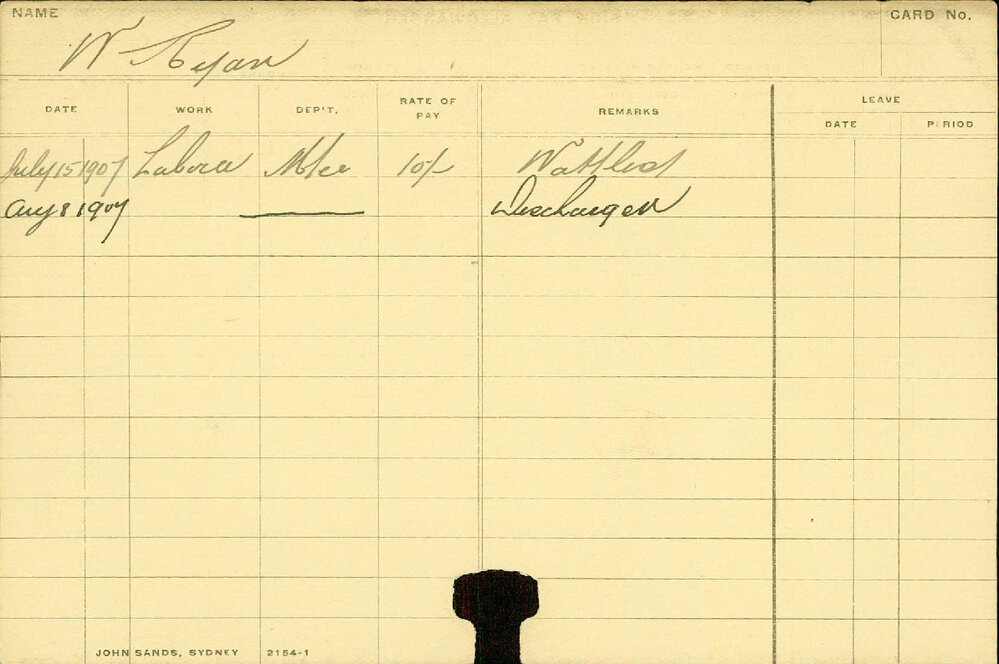 NAME
CARD No.
W Ryan
DATE WORK DEP'T. RATE OF PAY REMARKS LEAVE
DATE PERIOD
July 15 1907 Labour Mtce 10/-
Aug 8 1907 Discharged
JOHN SANDS, SYDNEY 2154-1